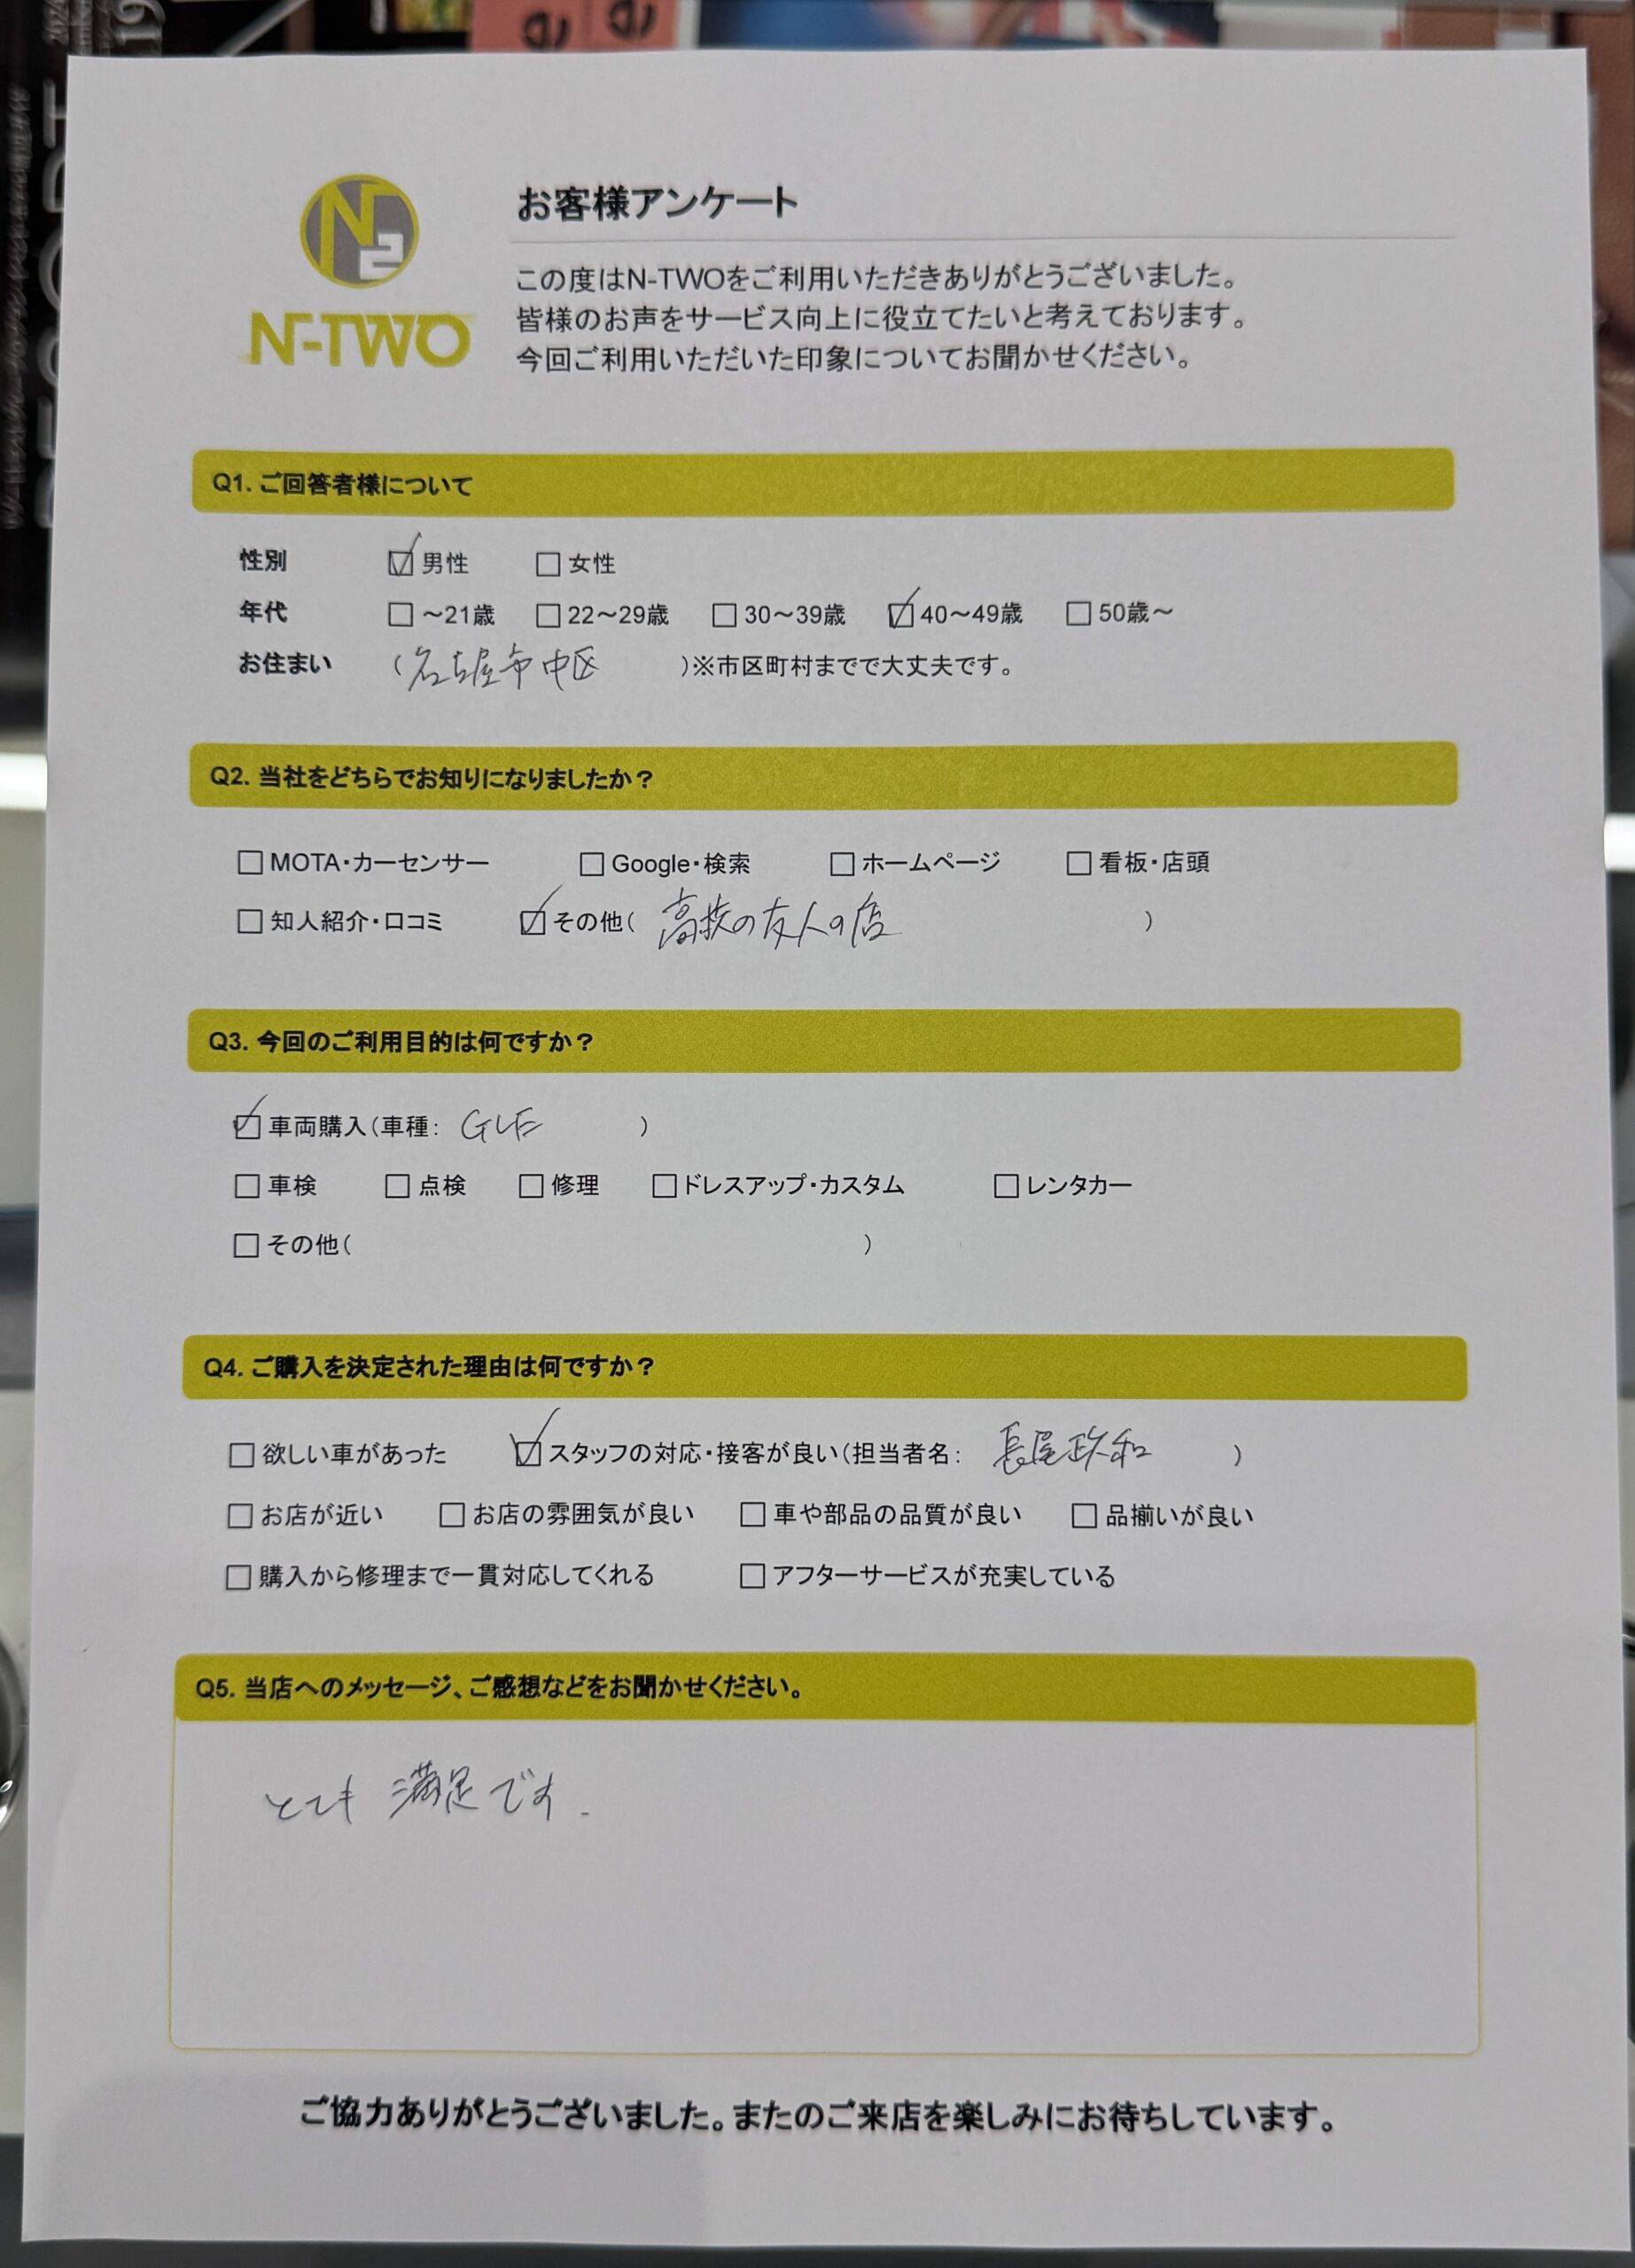 N2
N-TWO
お客様アンケート
この度はN-TWOをご利用いただきありがとうございました。
皆様のお声をサービス向上に役立てたいと考えております。
今回ご利用いただいた印象についてお聞かせください。
Q1. ご回答者様について
性別 ☑男性 □女性
年代 □～21歳 □22～29歳 □30～39歳 ☑40～49歳 □50歳～
お住まい (名古屋市中区)※市区町村までで大丈夫です。
Q2. 当社をどちらでお知りになりましたか？
□MOTA・カーセンサー □Google・検索 □ホームページ □看板・店頭
□知人紹介・口コミ ☑その他(高校の友人の店)
Q3. 今回のご利用目的は何ですか？
☑車両購入(車種: GLE)
□車検 □点検 □修理 □ドレスアップ・カスタム □レンタカー
□その他( )
Q4. ご購入を決定された理由は何ですか？
□欲しい車があった ☑スタッフの対応・接客が良い(担当者名: 長尾政和)
□お店が近い □お店の雰囲気が良い □車や部品の品質が良い □品揃いが良い
□購入から修理まで一貫対応してくれる □アフターサービスが充実している
Q5. 当店へのメッセージ、ご感想などをお聞かせください。
とても 満足です.
ご協力ありがとうございました。またのご来店を楽しみにお待ちしています。